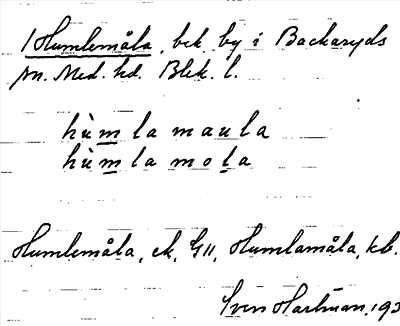 Humlemåla, bek. by i Backaryds
sn. Med. hd. Blek. l.
hùmlamaula
hùmlamola
Humlemåla, ek, G11, Humlamåla, kb.
Sven Hartman, 193